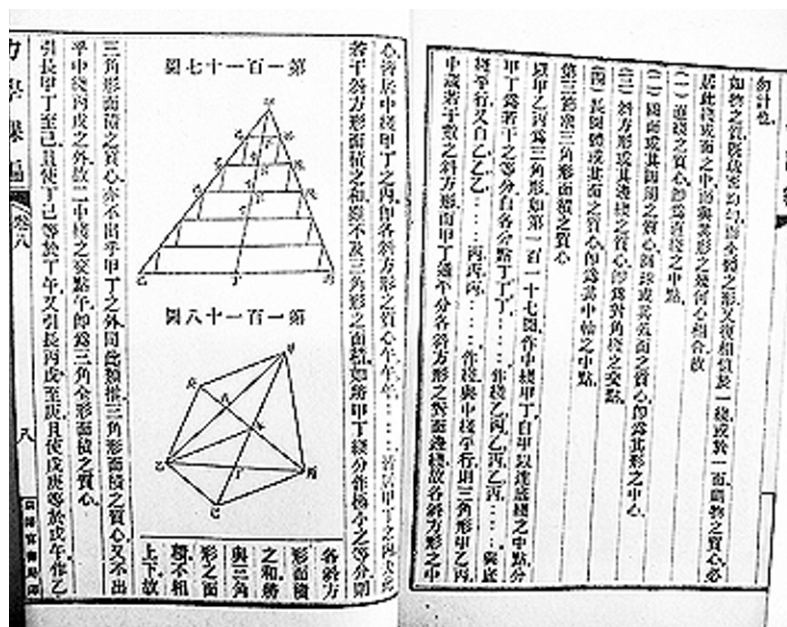 勿計也
如物之質既疎密均勻而全體之形又復相似於一綫或於一面則物之質心必
居此綫或面之中而與其形之幾何心相合故
(一)直綫之質心卽爲直綫之中點
(二)圓面或其圓周之質心圓球或其弧面之質心卽爲其形之中心
(三)斜方形或其邊綫之質心卽爲對角綫之交點
(四)長圓體或其面之質心卽爲其中軸之中點
第三節論三角形面積之質心
以甲乙丙爲三角形如第一百一十七圖作中綫甲丁自甲以達底綫之中點分
甲丁爲若干之等分自各分點丁丁丁……作綫乙丙乙丙乙丙……與底
綫平行又自乙乙乙……丙丙丙……作綫與中綫平行則三角形甲乙丙
中成若干數之斜方形而甲丁綫平分各斜方形之對面邊綫故各斜方形之中
心皆居中綫甲丁之內卽各斜方形之質心午午午……皆居甲丁之內
若干斜方形面積之和雖不及三角形之面積如將甲丁綫分作極小之等分則
第一百一十七圖
甲
乙
丁
丙
第一百一十八圖
甲
庚
午
乙
丁
丙
己
各斜方
形面積
之和將
與三角
形之面
積不相
上下故
三角形面積之質心亦不出乎甲丁之外同此類推三角形面積之質心又不出
乎中綫丙戊之外故二中綫之交點午卽爲三角全形面積之質心
引長甲丁至己且使丁己等於丁午又引長丙戊至庚且使戊庚等於戊午作乙
力學課編
卷八
八